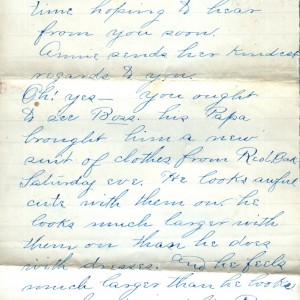 time hoping to hear
from you soon.
Annie sends her kindest
regards to you.
Oh! yes— you ought
to see Boss. his Papa
brought him a new
suit of clothes from Red Oak
Saturday eve. He looks awful
cute with them on. he
looks much larger with
them on than he does
with dresses. And he feels
much larger than he looks